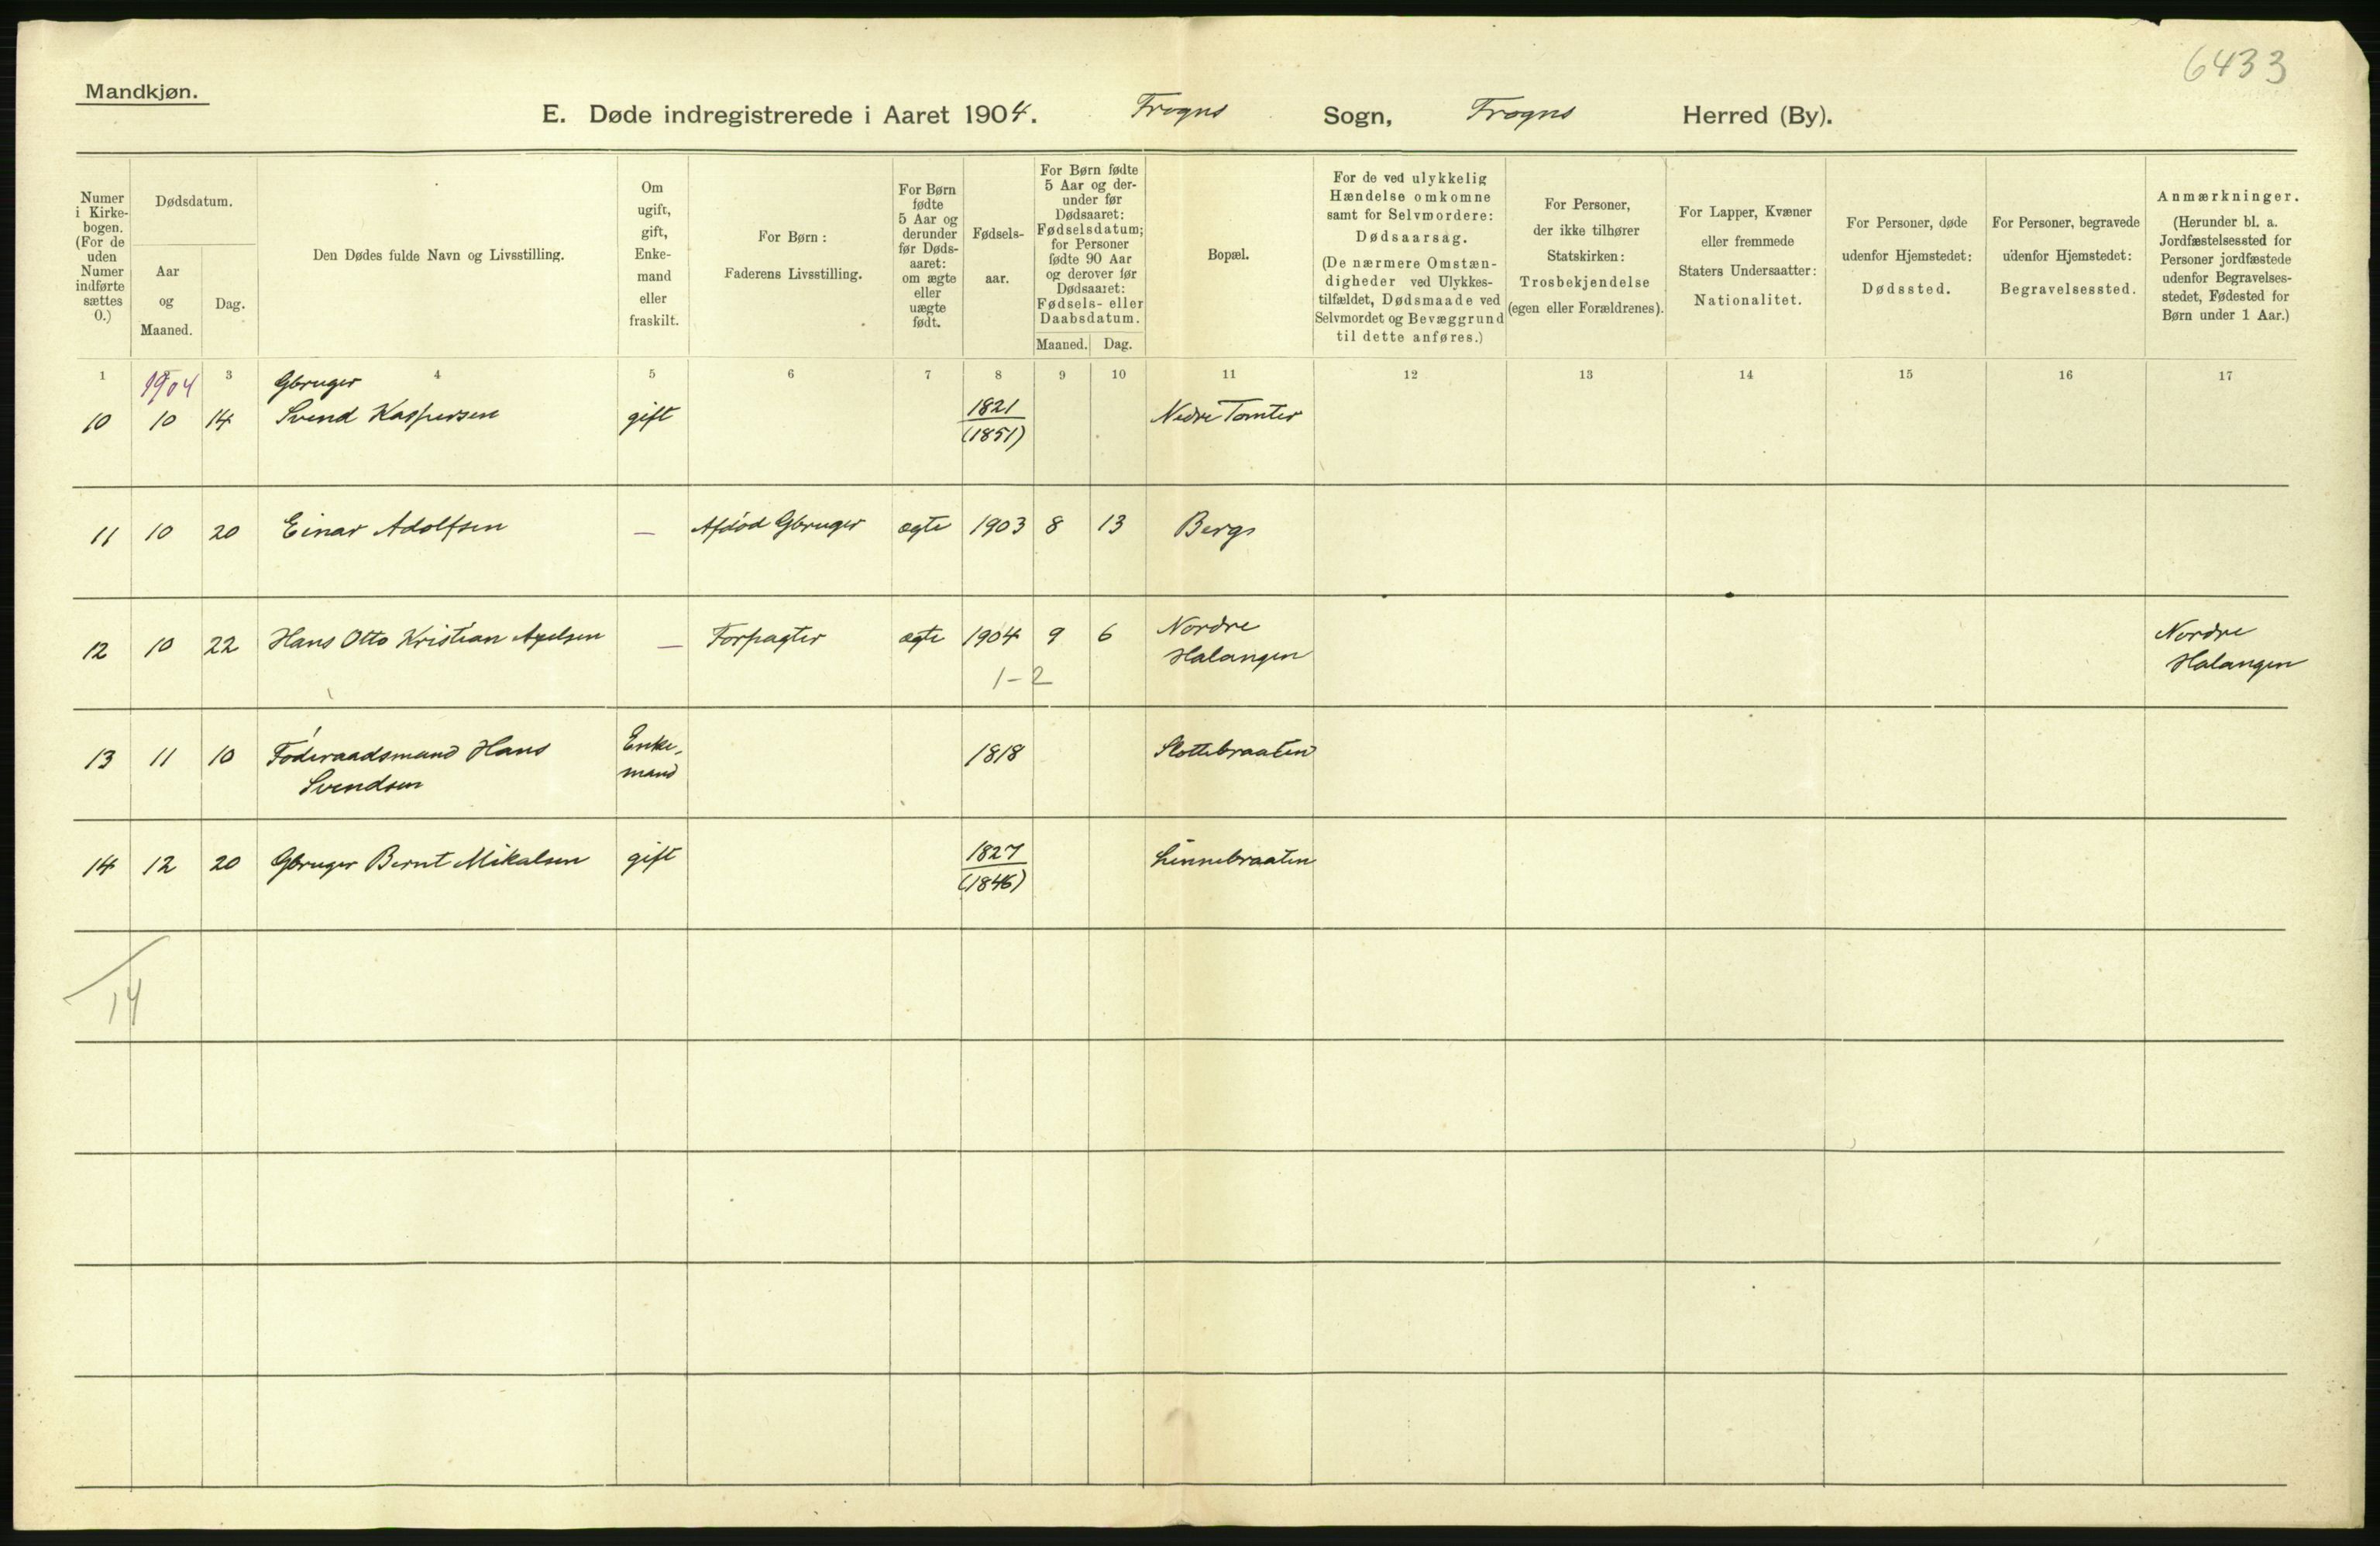 6433
Mandkjøn.
E. Døde indregistrerede i Aaret 1904. Frogns Sogn, Frogns Herred (By).
Numer
i Kirke-
bogen.
(For de
uden
Numer
indførte
sættes
0.)
Dødsdatum.
Aar
og
Maaned.
Dag.
Den Dødes fulde Navn og Livsstilling.
Om
ugift,
gift,
Enke-
mand
eller
fraskilt.
For Børn:
Faderens Livsstilling.
For Børn
fødte
5 Aar og
derunder
før Døds-
aaret:
om ægte
eller
uægte
født.
Fødsels-
aar.
For Børn fødte
5 Aar og der-
under før
Dødsaaret:
Fødselsdatum;
for Personer
fødte 90 Aar
og derover før
Dødsaaret:
Fødsels- eller
Daabsdatum.
Maaned. Dag.
Bopæl.
For de ved ulykkelig
Hændelse omkomne
samt for Selvmordere:
Dødsaarsag.
(De nærmere Omstæn-
digheder ved Ulykkes-
tilfældet, Dødsmaade ved
Selvmordet og Bevæggrund
til dette anføres.)
For Personer,
der ikke tilhører
Statskirken:
Trosbekjendelse
(egen eller Forældrenes).
For Lapper, Kvæner
eller fremmede
Staters Undersaatter:
Nationalitet.
For Personer, døde
udenfor Hjemstedet:
Dødssted.
For Personer, begravede
udenfor Hjemstedet:
Begravelsessted.
Anmærkninger.
(Herunder bl. a.
Jordfæstelsessted for
Personer jordfæstede
udenfor Begravelses-
stedet, Fødested for
Børn under 1 Aar.)
1 3 4 5 6 7 8 9 10 11 12 13 14 15 16 17
1904 Gbruger
10 10 14 Svend Kaspersen gift 1821 Nedre Tomter
(1851)
11 10 20 Einar Adolfsen — Afdød Gbruger ægte 1903 8 13 Berge
12 10 22 Hans Otto Kristian Axelsen — Forpagter ægte 1904 9 6 Nordre Nordre
Halangen Halangen
1-2
13 11 10 Føderaadsmand Hans Enke- 1818 Slottebraaten
Svendsen mand
14 12 20 Gbruger Bernt Mikalsen gift 1827 Linnebraaten
(1846)
14